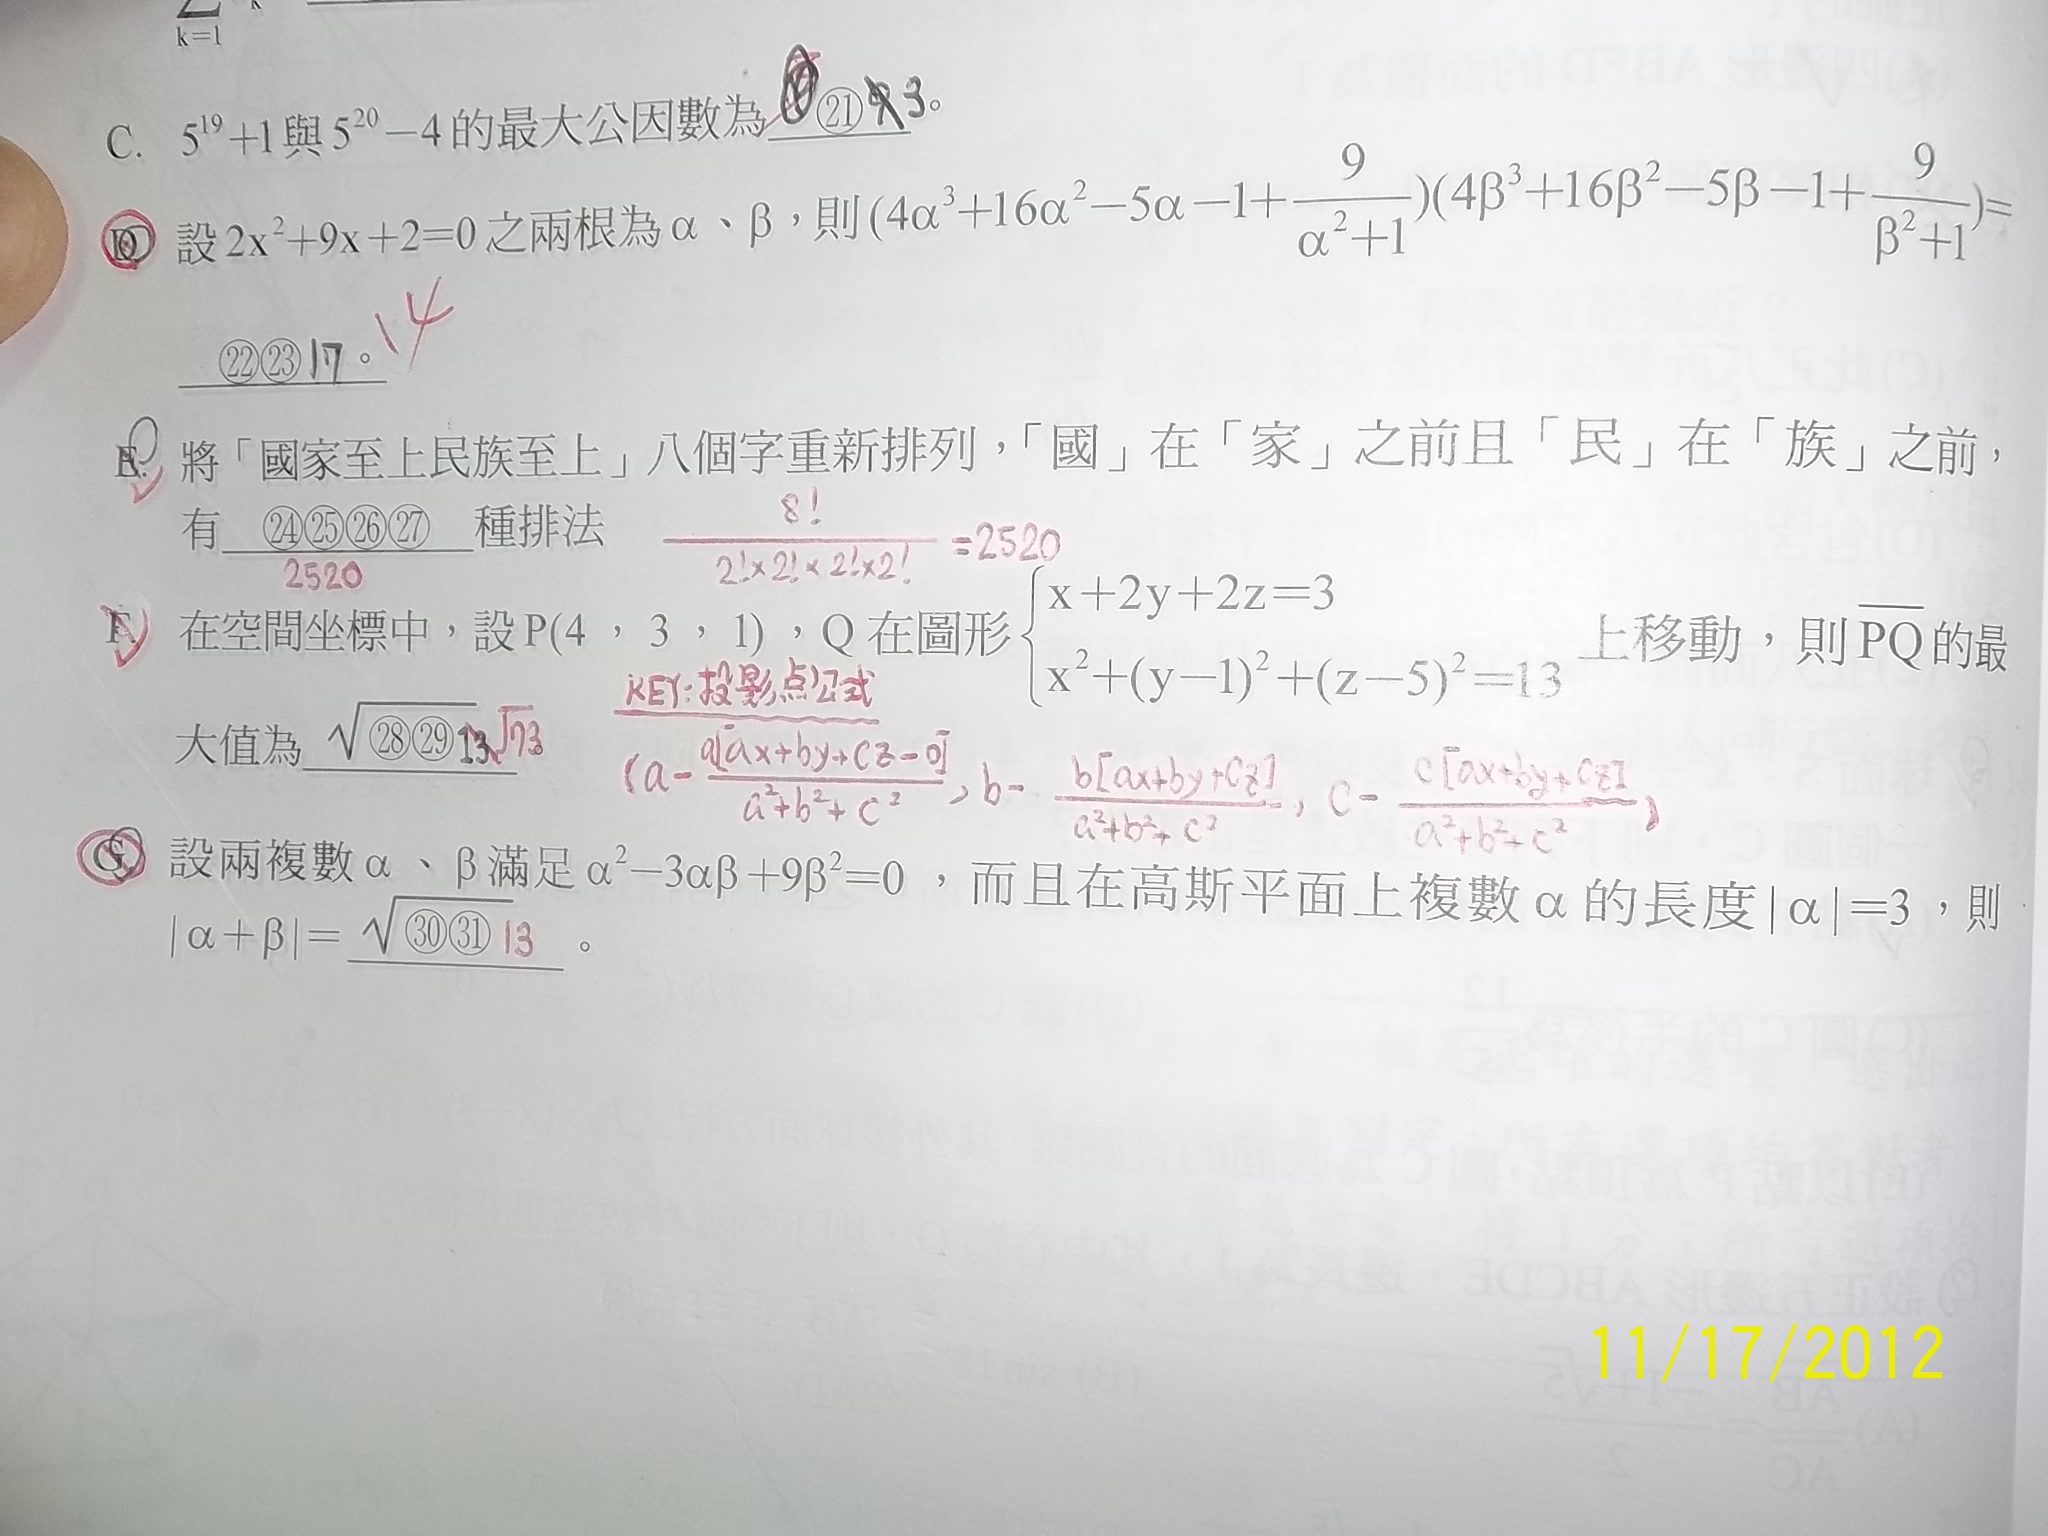 k=1
C. 5¹⁹+1與5²⁰−4的最大公因數為㉑3。
D. 設2x²+9x+2=0之兩根為α、β，則(4α³+16α²−5α−1+9/(α²+1))(4β³+16β²−5β−1+9/(β²+1))=
㉒㉓17。14
E. 將「國家至上民族至上」八個字重新排列，「國」在「家」之前且「民」在「族」之前，
有㉔㉕㉖㉗種排法 8!/(2!×2!×2!×2!) =2520
2520
F. 在空間坐標中，設P(4，3，1)，Q在圖形{x+2y+2z=3
x²+(y−1)²+(z−5)²=13 上移動，則PQ的最
KEY:投影点公式
大值為√㉘㉙13 √73。
(a− a[ax+by+cz−0]/(a²+b²+c²), b− b[ax+by+cz]/(a²+b²+c²), c− c[ax+by+cz]/(a²+b²+c²))
G. 設兩複數α、β滿足α²−3αβ+9β²=0，而且在高斯平面上複數α的長度|α|=3，則
|α+β|=√㉚㉛13。
11/17/2012